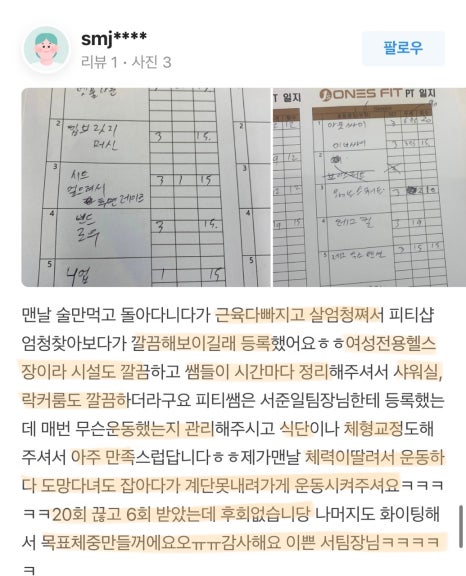 smj****
리뷰 1 · 사진 3
팔로우
2
머신
3
15.
3
시드
3
1
15
4
밴드
로우
3
15.
5
1
15
PT 일지
JONES FIT PT 일지
1
2
3
4
5
맨날 술만먹고 돌아다니다가 근육다빠지고 살엄청쪄서 피티샵
엄청찾아보다가 깔끔해보이길래 등록했어요ㅎㅎ여성전용헬스
장이라 시설도 깔끔하고 쌤들이 시간마다 정리해주셔서 샤워실,
락커룸도 깔끔하더라구요 피티쌤은 서준일팀장님한테 등록했는
데 매번 무슨운동했는지 관리해주시고 식단이나 체형교정도해
주셔서 아주 만족스럽답니다ㅎㅎ제가맨날 체력이딸려서 운동하
다 도망다녀도 잡아다가 계단못내려가게 운동시켜주셔요ㅋㅋㅋ
ㅋㅋ20회 끊고 6회 받았는데 후회없습니당 나머지도 화이팅해
서 목표체중만들꺼에요오ㅠㅠ감사해요 이쁜 서팀장님ㅋㅋㅋㅋ
ㅋ